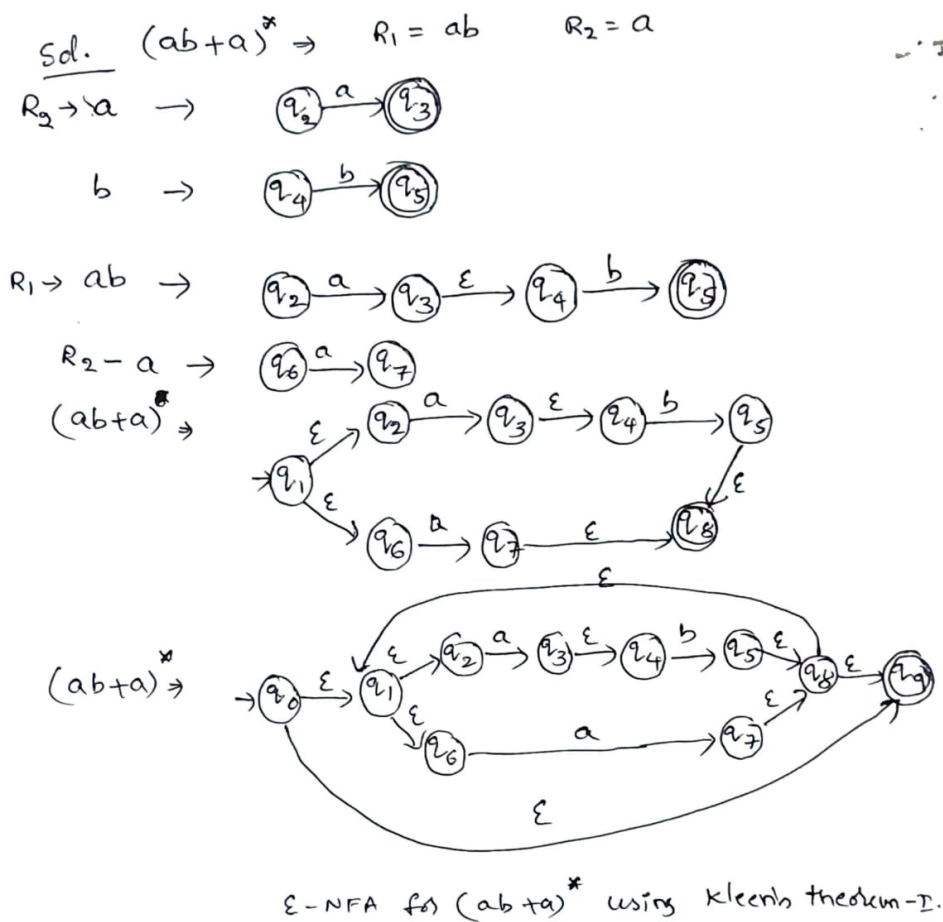 Sol. (ab+a)* → R₁ = ab R₂ = a
R₂ → a → q₂ a q₃
b → q₄ b q₅
R₁ → ab → q₂ a q₃ ε q₄ b q₅
R₂ - a → q₆ a q₇
(ab+a) → q₁ ε q₂ a q₃ ε q₄ b q₅ ε
ε q₆ a q₇ ε q₈
ε
(ab+a)* → q₀ ε q₁ ε q₂ a q₃ ε q₄ b q₅ ε q₈ ε q₉
ε q₆ a q₇ ε
ε
ε-NFA for (ab+a)* using Kleen's theorem-I.